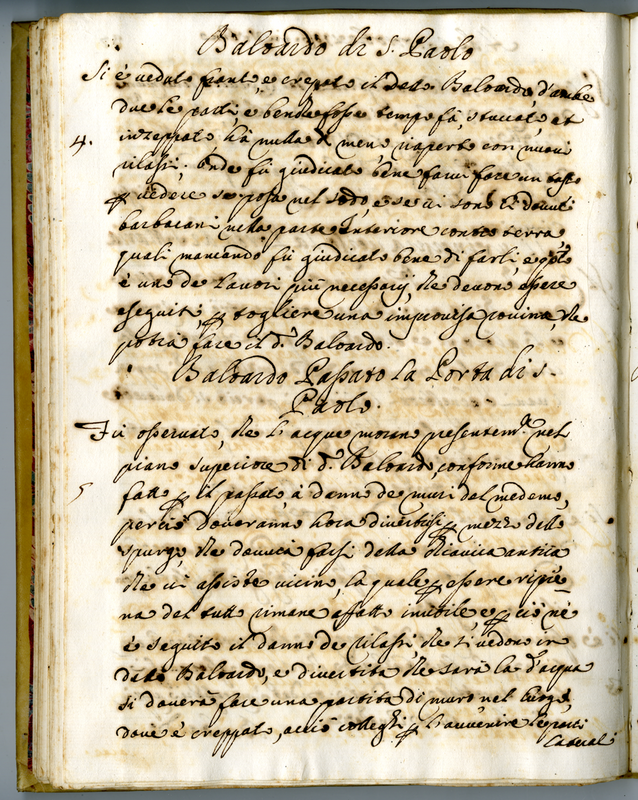 Baloardo di S. Paolo
Si è veduto fianto, e crepato il detto Baloardo, d'ambe
due le parti, e benche fosse tempo fà, stuccato, et
4. inzeppato, hà nulla di meno riaperto con nuovi
rilassi; onde fù giudicato bene farvi fare un tasto
vedere se posa nel sodo, e se ci sono li dovuti
barbacani nella parte Interiore contro terra
quali mancando fù giudicato bene di farli, e qsto
è uno de lavori più necessarij, che devono essere
eseguiti, togliere una improvisa rovina, che
potria fare il d.º Baloardo.
Baloardo Passato la Porta di S.
Paolo.
Fù osservato, che l'acque morano presentem.te nel
piano superiore di d.º Baloardo, conforme hanno
5 fatto il passato, à danno de muri del medemo,
perciò doveranno hora divertirsi mezzo dello
spurgo, che doverà farsi della chiavica antica
che ci assiste vicino, la quale essere ripie-
na del tutto rimane affatto inutile, e ciò ne
è seguito il danno de rilassi, che si vedono in
detto Baloardo, e divertita che sarà la d.ª acqua
si doverà fare una partita di muro nel luogo,
dove è creppato, acciò colleghi l'avvenire le parti
laterali